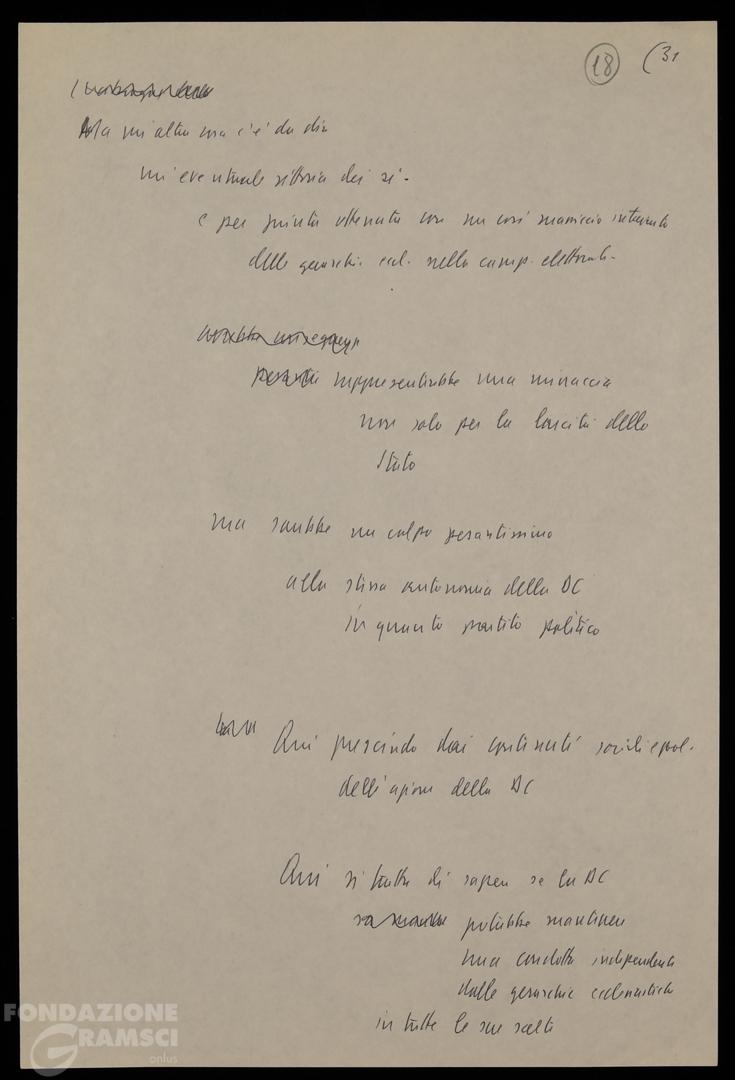 18 (31
Ma un'altra cosa c'è da dire
un'eventuale vittoria dei sì -
e per giunta ottenuta con un così massiccio intervento
delle gerarchie eccl. nella camp. elettorale -
rappresenterebbe una minaccia
non solo per la laicità dello
Stato
ma sarebbe un colpo pesantissimo
alla stessa autonomia della DC
in quanto partito politico
Qui prescindo dai contenuti sociali e pol.
dell'azione della DC
Qui si tratta di sapere se la DC
potrebbe mantenere
una condotta indipendente
dalle gerarchie ecclesiastiche
in tutte le sue scelte
FONDAZIONE
GRAMSCI
onlus